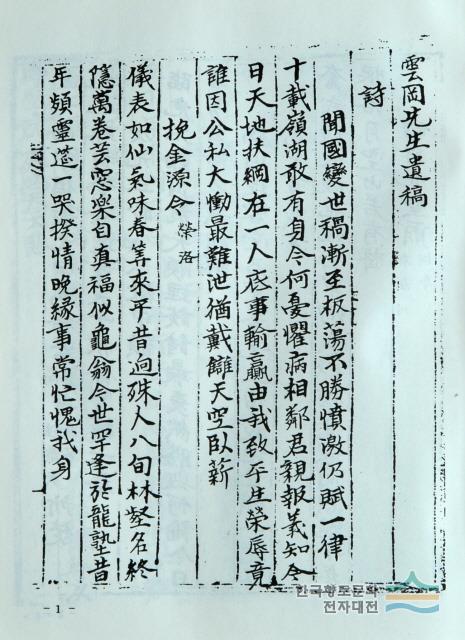 雲岡先生遺稿
詩
聞國變世禍漸至板蕩不勝憤激仍賦一律
十載嶺湖敢有身今何憂懼病相鄰君親報義知今
日天地扶綱在一人底事輸贏由我致平生榮辱竟
誰因公私大慟最難泄猶戴讎天空臥薪
挽金源令 榮洛
儀表如仙氣味春算來平昔逈殊人八旬林壑名終
隱萬卷芸窓樂自真福似龜翁今世罕逢於龍塾昔
年頻靈筵一哭揆情晩緣事常忙愧我身
- 1 -
한국향토문화
전자대전